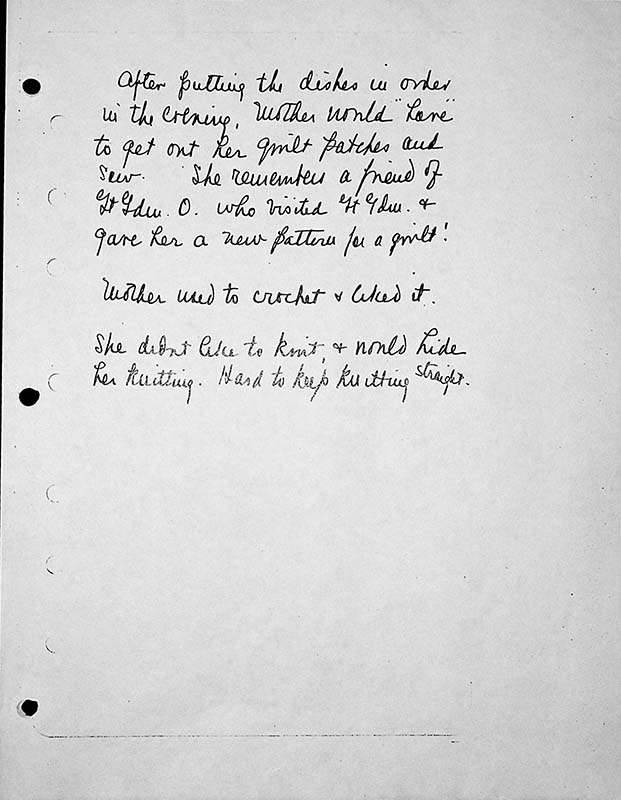 After putting the dishes in order
in the evening, Mother would "have"
to get out her quilt patches and
sew. She remembers a friend of
Gt Gdm. O. who visited Gt Gdm. &
gave her a new pattern for a quilt!
Mother used to crochet & liked it.
She didn't like to knit, & would hide
her knitting. Hard to keep knitting straight.